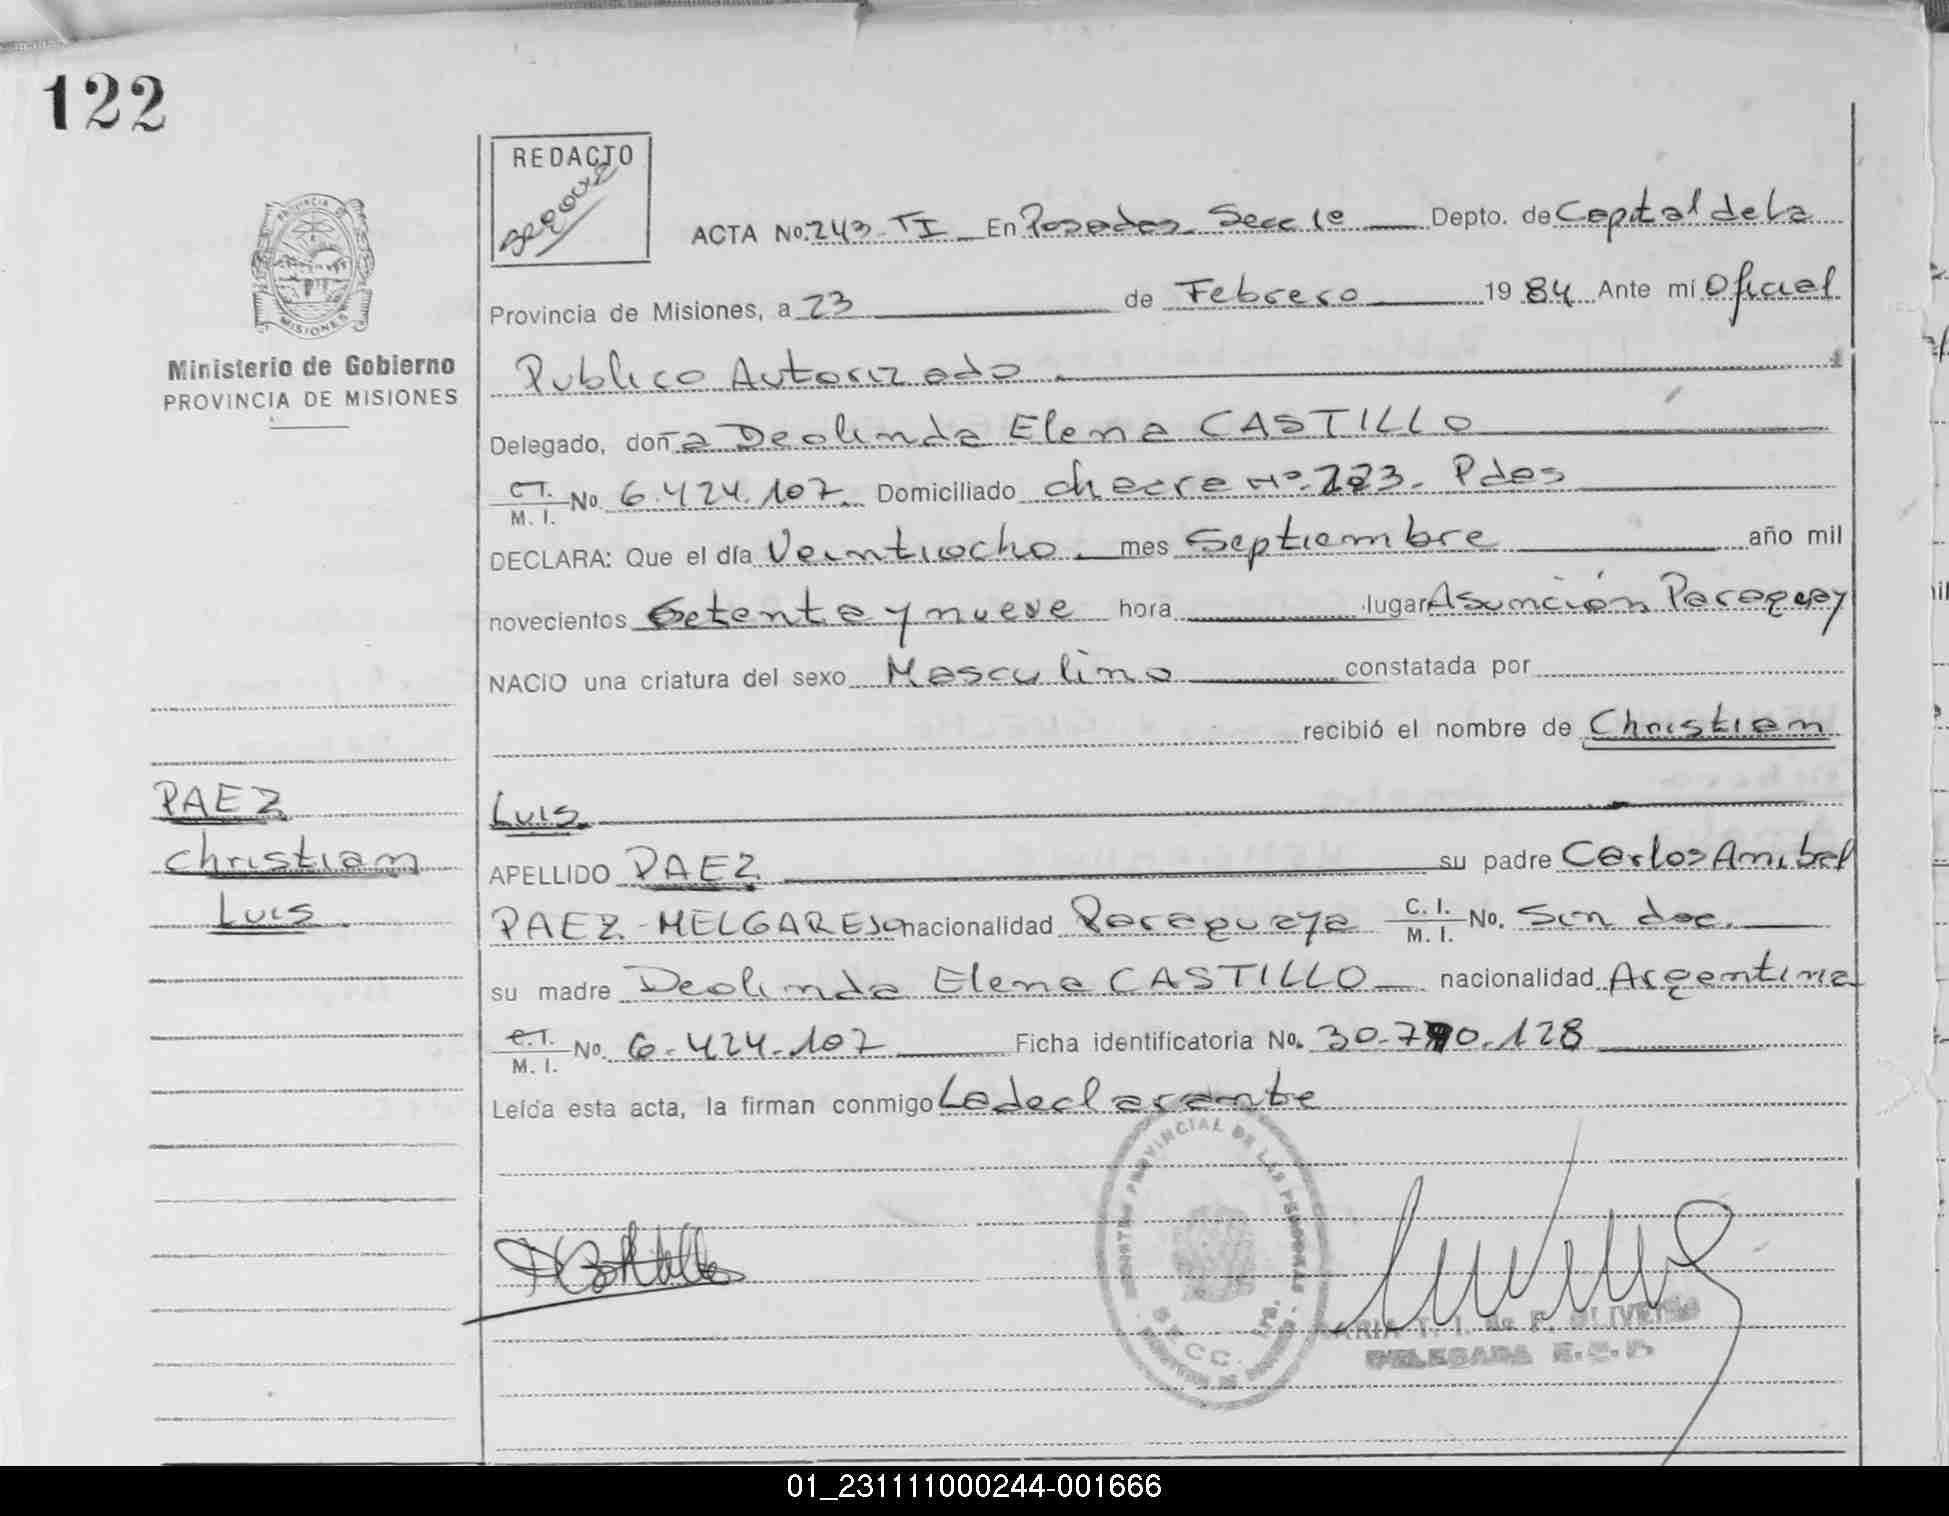 122
REDACTO
ACTA No. 243-TI En Posadas Secc 1º Depto. de Capital de La
Provincia de Misiones, a 23 de Febrero 1984 Ante mí Oficial
Ministerio de Gobierno
PROVINCIA DE MISIONES
Publico Autorizado
Delegado, doña Deolinda Elena CASTILLO
C.I. M. I. No. 6.424.107. Domiciliado chacra Nº. 123. Pdas
DECLARA: Que el día Veintiocho. mes Septiembre año mil
novecientos Setenta y nueve hora lugar Asunción Paraguay
NACIO una criatura del sexo Masculino constatada por
recibió el nombre de Christian
Luis
APELLIDO PAEZ su padre Carlos Anibal
PAEZ-MELGAREJO nacionalidad Paraguaya C. I. M. I. No. Sin doc.
su madre Deolinda Elena CASTILLO nacionalidad Argentina
C.I. M. I. No. 6.424.107 Ficha identificatoria No. 30.790.128
Leída esta acta, la firman conmigo La declarante
PAEZ
Christian
Luis
PROVINCIAL DE LAS PERSONAS
DELEGADA
01_231111000244-001666